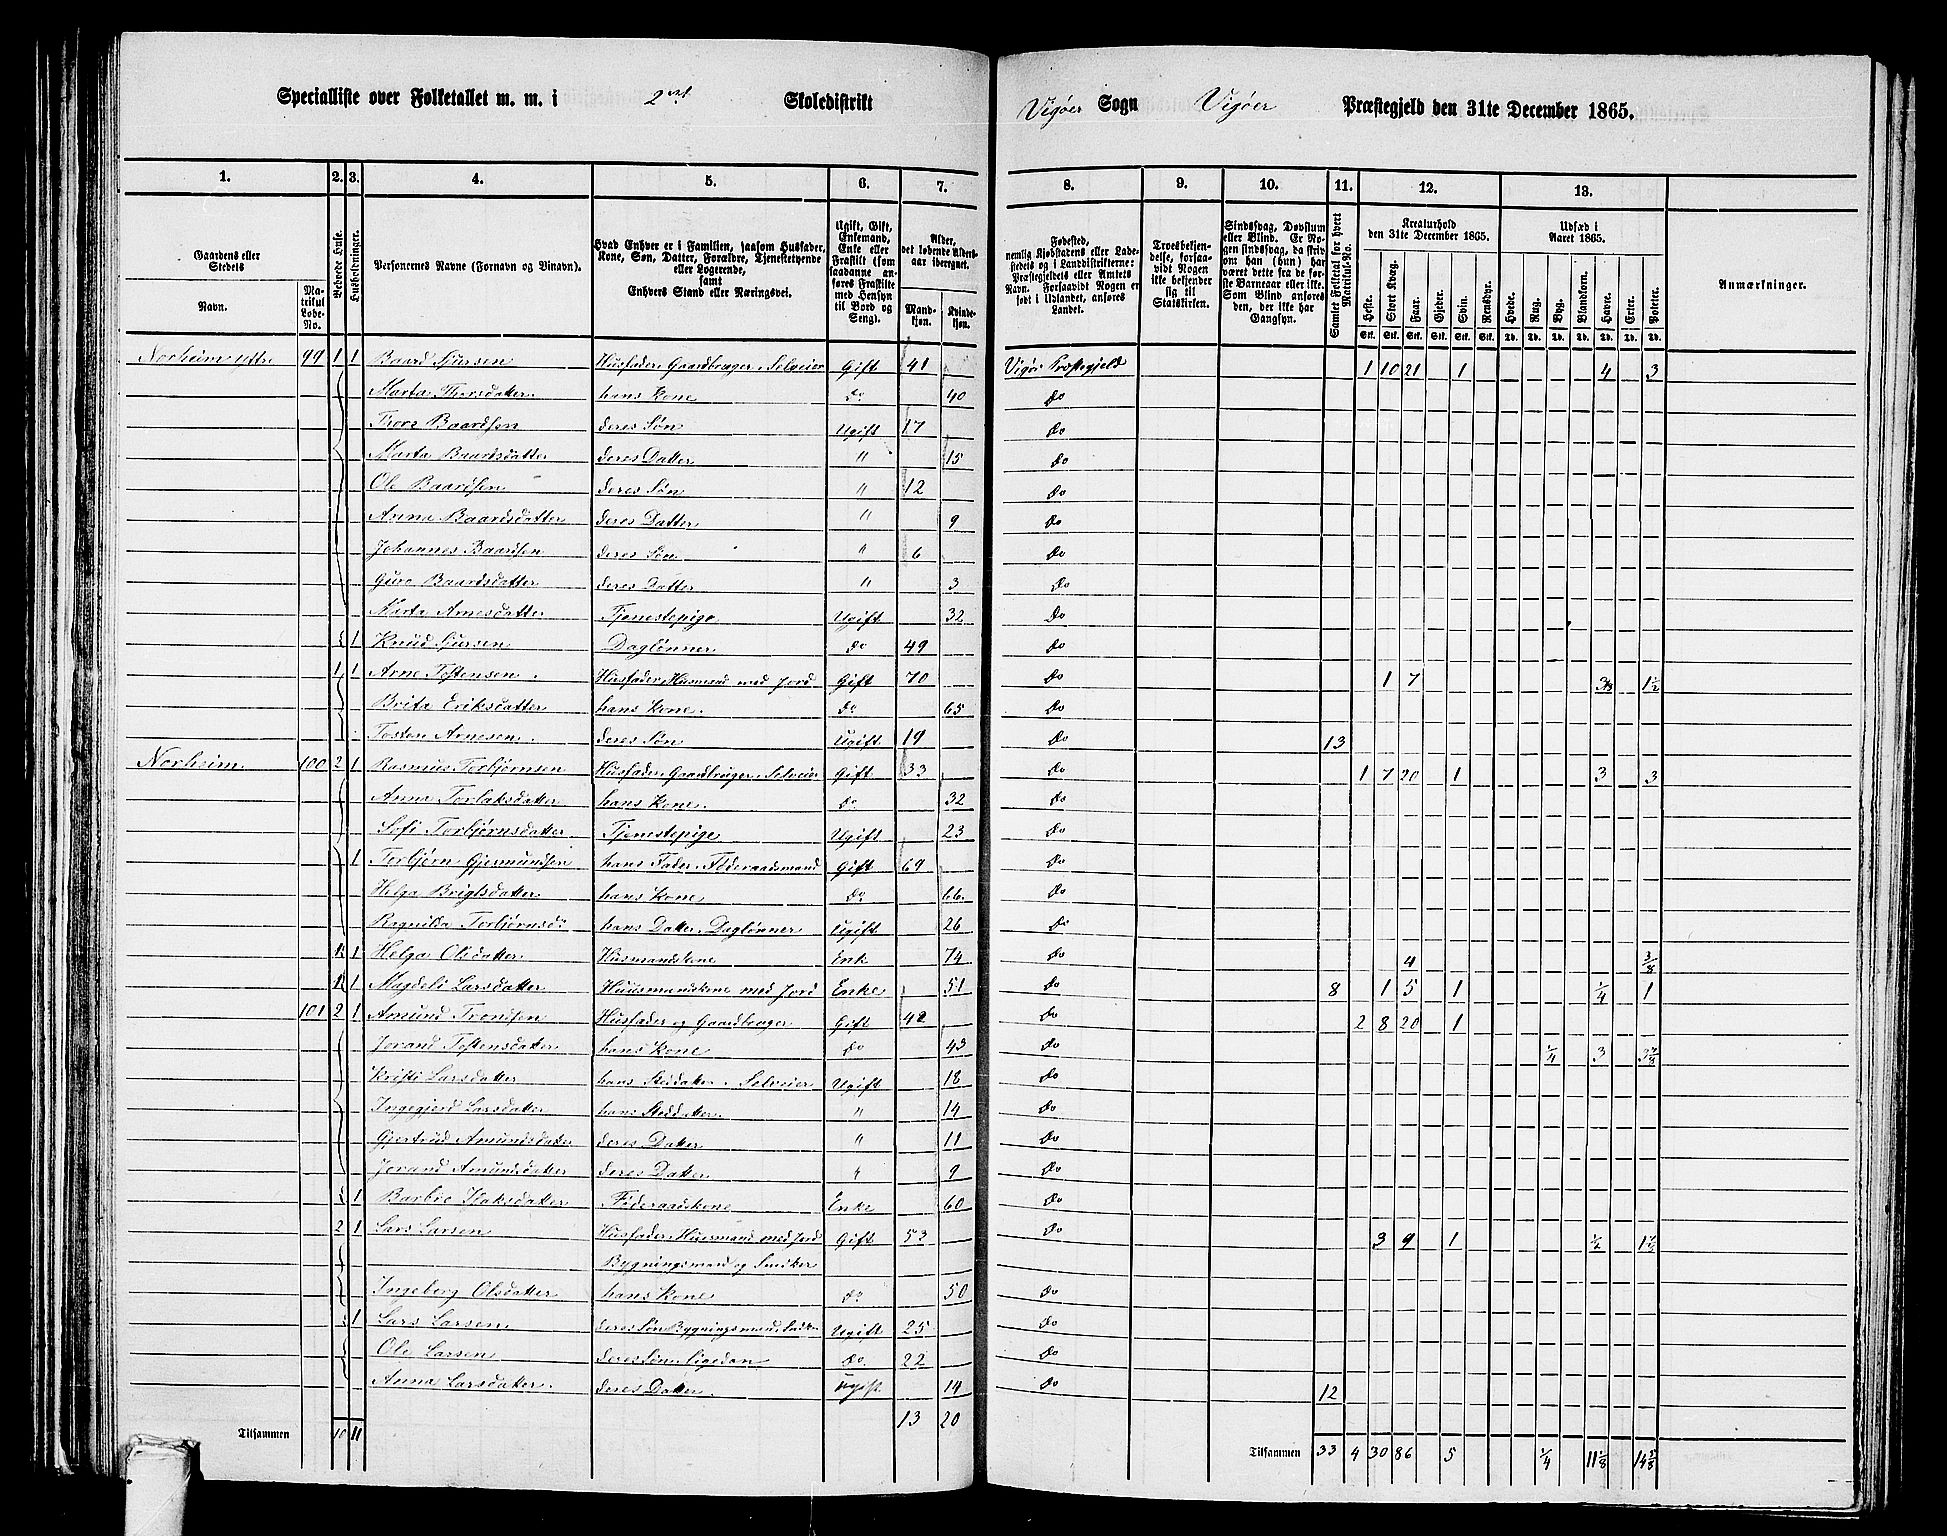 Specialliste over Folketallet m. m. i 2det Skoledistrikt Vigøer Sogn Vigøer Præstegjeld den 31te December 1865.
1. 2. 3. 4. 5. 6. 7. 8. 9. 10. 11. 12. 13.
Gaardens eller Stedets Navn. Matrikul Løbe-No.
Bebvede Huse.
Husholdninger.
Personernes Navne (Fornavn og Tilnavn).
Hvad Enhver er i Familien, saasom Husfader, Kone, Søn, Datter, Forældre, Tjenestetyende eller Logerende, samt Enhvers Stand eller Næringsvei.
Ugift, Gift, Enkemand, Enke eller Fraskilt (som saadanne anføres Fraskilte med Hensyn til Bord og Seng).
Alder, det løbende Aldersaar iberegnet.
Mandkjøn. Kvindekjøn.
Fødested, nemlig Kjøbstadens eller Ladestedets og i Landdistrikterne: Præstegjeldets eller Amtets Navn. Forsaavidt Nogen er født i Udlandet, anføres Landet.
Troesbekjendelse, forsaavidt Nogen ikke bekjender sig til Statskirken.
Sindssvag, Døvstum eller Blind. Er Nogen sindssvag, da skrives om han (hun) har været dette fra de første Barneaar eller ikke. Som Blind anføres den, der ikke har Gangsyn.
Samlet Folketal for hvert Matrikul-No.
Kreaturhold den 31te December 1865.
Heste. Stort Kvæg. Faar. Gjeder. Svin. Rensdyr.
Udsæd i Aaret 1865.
Hvede. Rug. Byg. Blandkorn. Havre. Erter. Poteter.
Anmærkninger.
Norheim ytre 99 1 1 Baard Sjursen Husfader, Gaardbruger, Selveier Gift 41 Vigør Præstegjeld 1 10 21 1 4 3
Marta Thorsdatter hans Kone Do 40 Do
Thore Baardsen deres Søn Ugift 17 Do
Marta Baardsdatter deres Datter " 15 Do
Ole Baardsen deres Søn " 12 Do
Anna Baardsdatter deres Datter " 9 Do
Johannes Baardsen deres Søn " 6 Do
Guro Baardsdatter deres Datter " 3 Do
Marta Arnesdatter Tjenestepige Ugift 32 Do
1 Knud Sjursen Daglønner Do 49 Do
1 1 Arne Tostensen Husfader, Husmand med Jord Gift 70 Do 1 7 1½
Brita Eriksdatter hans Kone Do 65 Do
Tosten Arnesen deres Søn Ugift 19 Do 13
Norheim 100 2 1 Rasmus Torbjørnsen Husfader, Gaardbruger, Selveier Gift 33 Do 1 7 20 1 3 3
Anna Torlaksdatter hans Kone Do 32 Do
Sofi Torbjørnsdatter Tjenestepige Ugift 23 Do
1 Torbjørn Gjermundsen hans Fader, Føderaadsmand Gift 69 Do
Helga Brigtsdatter hans Kone Do 66 Do
Ragnilda Torbjørnsd: hans Datter, Daglønner Ugift 26 Do
1 Helga Olsdatter Husmandskone Enk 74 Do 4 3/8
1 Magdeli Larsdatter Huusmandskone med Jord Enke 51 Do 8 1 5 1 ¼ 1
101 2 1 Amund Trondsen Husfader og Gaardbruger Gift 42 Do 2 8 20 1
Jorand Tostensdatter hans Kone Do 43 Do ¼ 3
Kristi Larsdatter hans Steddatter, Selveier Ugift 18 Do
Ingegjerd Larsdatter hans Steddatter " 14 Do
Gjertrud Amundsdatter deres Datter " 11 Do
Jorand Amundsdatter deres Datter " 9 Do
1 Barbro Isaksdatter Føderaadskone Enke 60 Do
2 1 Lars Larsen Husfader, Husmand med Jord Gift 53 Do 3 9 1 ½ 1½
Bygningsmand og Snidker
Ingeborg Olsdatter hans Kone Do 50 Do
1 Lars Larsen deres Søn Bygningsmand, Ugift 25 Do
Ole Larsen deres Søn, ligedan Do 22 Do
Anna Larsdatter deres Datter Ugift 14 Do 12
13 20
Tilsammen 10 11 Tilsammen 33 4 30 86 5 ¼ 11⅛